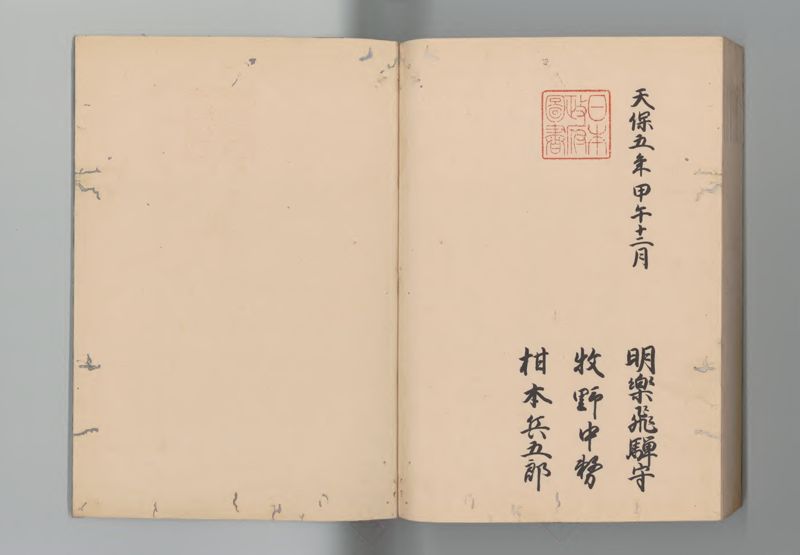 天保五年甲午十二月
日本
政府
圖書
明樂飛騨守
牧野中務
柑本兵五郎